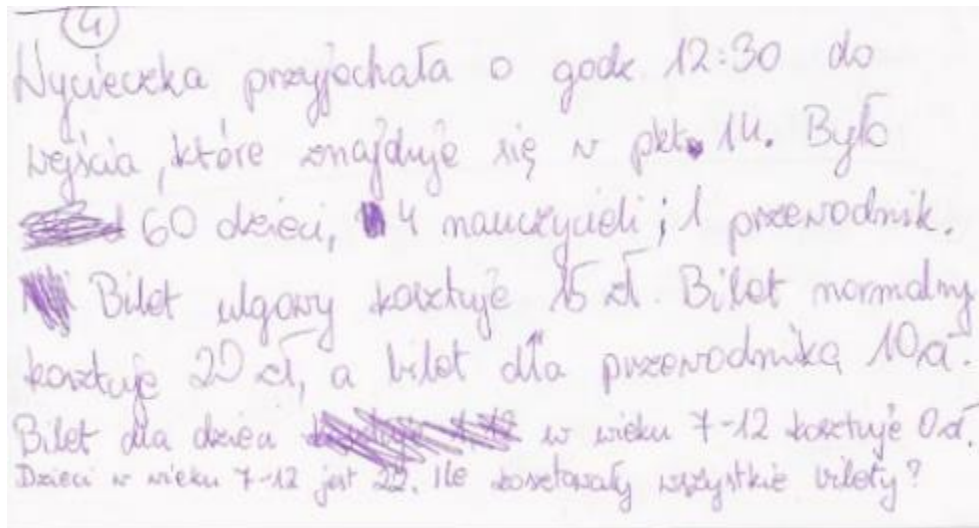 4
Wycieczka przyjechała o godz. 12:30 do
wejścia, które znajduje się w pkt. 14. Było
60 dzieci, 4 nauczycieli i 1 przewodnik.
Bilet ulgowy kosztuje 15 zł. Bilet normalny
kosztuje 20 zł, a bilet dla przewodnika 10 zł.
Bilet dla dzieci w wieku 7-12 kosztuje 0 zł.
Dzieci w wieku 7-12 jest 22. Ile kosztowały wszystkie bilety?